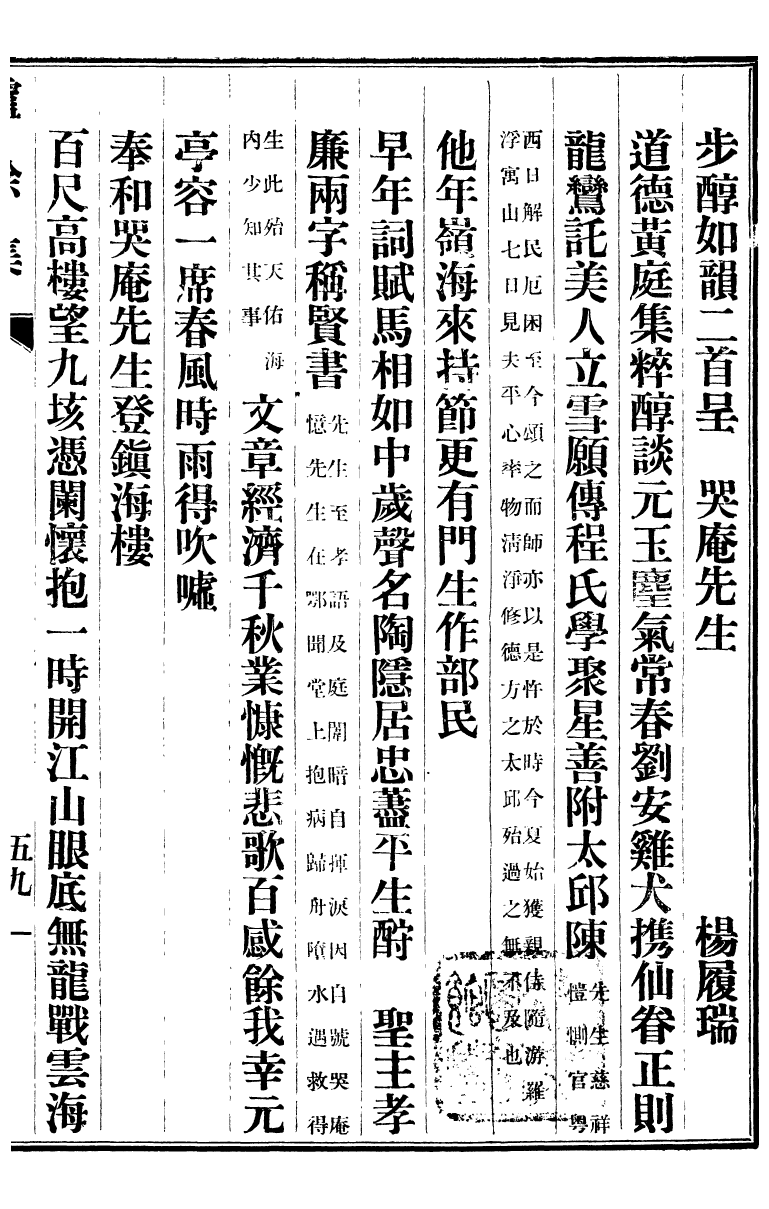 步醇如韻二首呈　哭庵先生　楊履瑞
道德黃庭集粹醇談元玉麈氣常春劉安雞犬携仙眷正則
龍鸞託美人立雪願傳程氏學聚星善附太邱陳先生慈祥愷惻官粵
西日解民厄困至今頌之而師亦以是忤於時今夏始獲親侍隨游羅
浮寓山七日見夫平心率物清淨修德方之太邱殆過之無不及也
他年嶺海來持節更有門生作部民
早年詞賦馬相如中歲聲名陶隱居忠藎平生酧　聖主孝
廉兩字稱賢書先生至孝語及庭闈暗自揮淚因自號哭庵
憶先生在鄂聞堂上抱病歸舟墮水遇救得
生此殆天佑海
內少知其事
文章經濟千秋業慷慨悲歌百感餘我幸元
亭容一席春風時雨得吹噓
奉和哭庵先生登鎭海樓
百尺高樓望九垓憑闌懷抱一時開江山眼底無龍戰雲海
五九